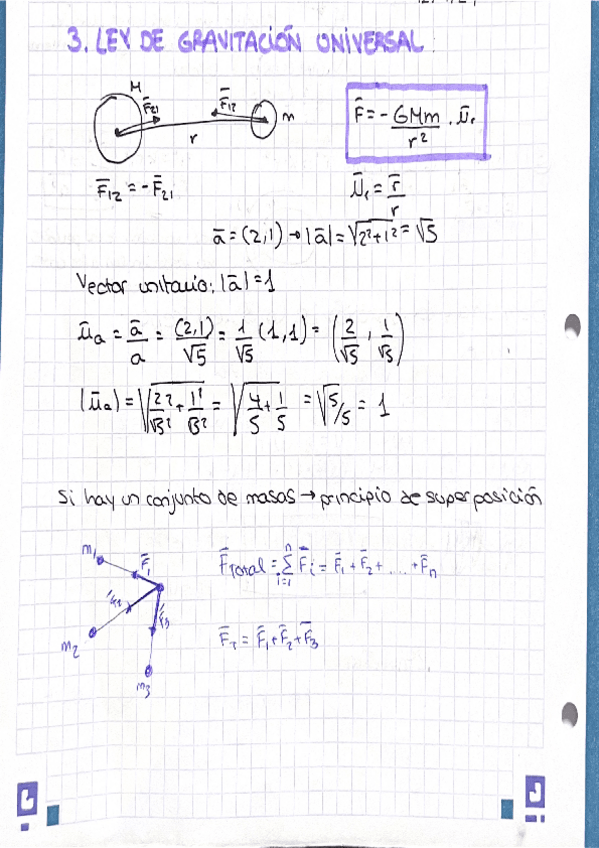 3. LEY DE GRAVITACIÓN UNIVERSAL
M
F̄₂₁
F̄₁₂
m
r
F̄ = - GMm/r² · ūᵣ
F̄₁₂ = -F̄₂₁
ūᵣ = r̄/r
ā = (2,1) → |ā| = √2²+1² = √5
Vector unitario: |ā| = 1
ūₐ = ā/a = (2,1)/√5 = 1/√5 (1,1) = (2/√5, 1/√5)
|ūₐ| = √2²/√5² + 1²/√5² = √4/5 + 1/5 = √5/5 = 1
Si hay un conjunto de masas → principio de superposición
m₁
F̄₁
F̄₂
F̄₃
m₂
m₃
F̄Total = Σⁿᵢ₌₁ F̄ᵢ = F̄₁ + F̄₂ + .... + F̄ₙ
F̄ₜ = F̄₁ + F̄₂ + F̄₃